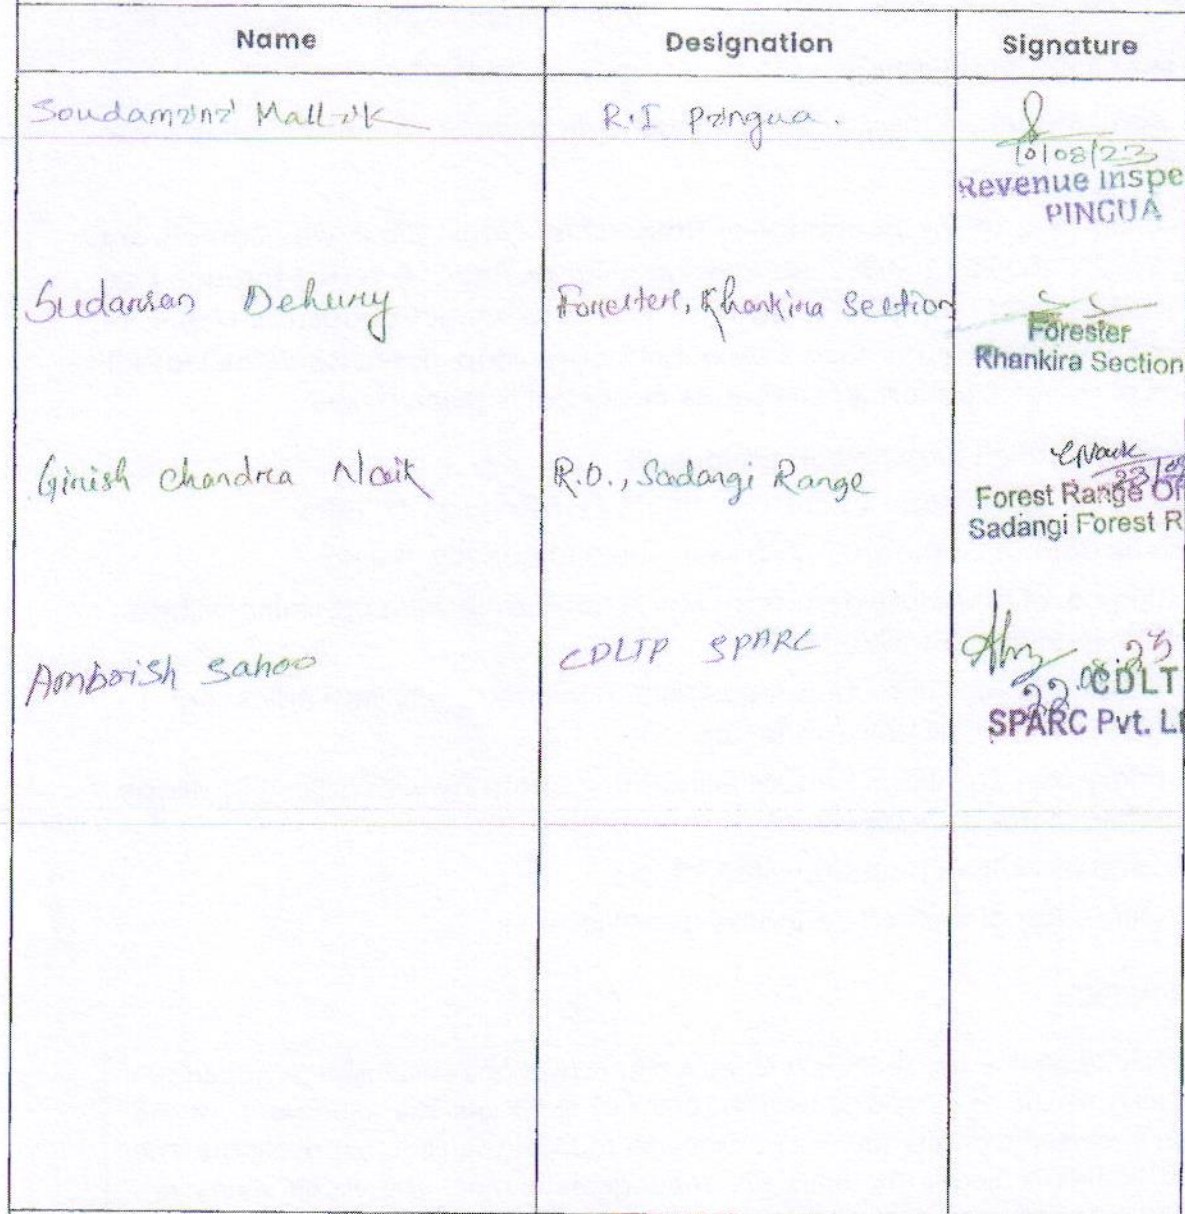 Name Designation Signature
Soudamini Mallik R.I Pingua.
10/08/23
Revenue Inspe
PINGUA
Sudarsan Dehury Forester, Khankira Section
Forester
Khankira Section
Girish Chandra Naik R.O., Sadangi Range
Forest Range Of
Sadangi Forest R
Ambrish Sahoo CDLTP SPARC
22.08.23
CDLT
SPARC Pvt. Lt